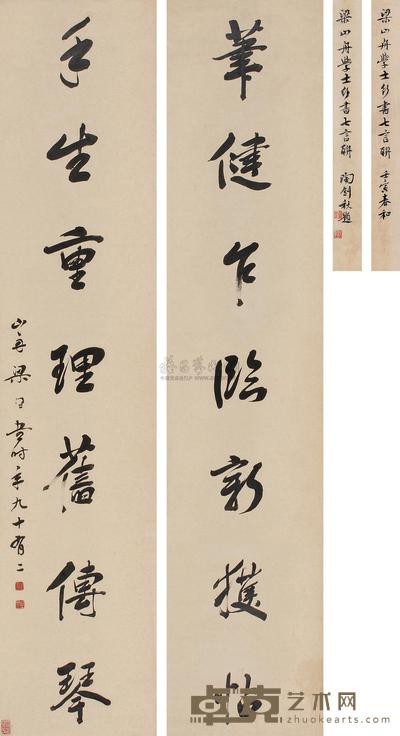 梁山舟學士行書七言聯 壬寅春和
梁山舟學士行書七言聯 陶劍秋題
筆健乍臨新獲帖
手生重理舊傳琴
山舟梁同書時年九十有二
卓克艺术网
www.zhuokearts.com